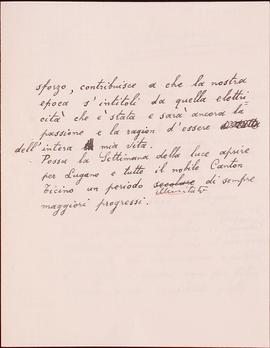 sforzo, contribuisce a che la nostra
epoca s'intitoli da quella elettri
cità che è stata e sarà ancora la
passione e la ragion d'essere
dell'intera mia vita.
Possa la Settimana della luce aprire
per Lugano e tutto il nobile Canton
Ticino un periodo secolare di sempre
illimitato
maggiori progressi.